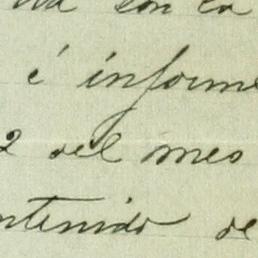 son la
é informe
2 del mes
ntenido de